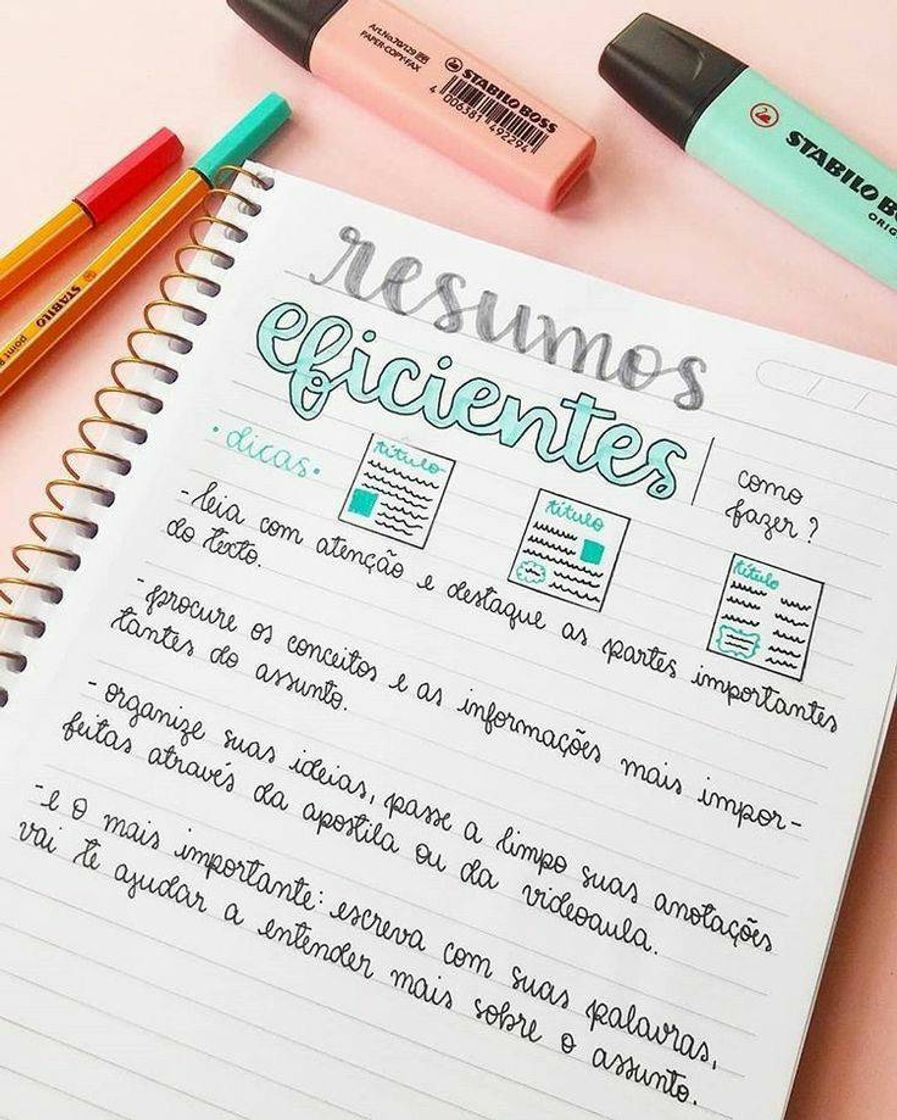 Art.No.70/129
PAPER-COPY-FAX
STABILO BOSS
4 006381 492294
STABILO BO
ORIG
STABILO
point 8
resumos
eficientes
como
fazer?
• dicas •
título
título
título
- leia com atenção e destaque as partes importantes
do texto.
- procure os conceitos e as informações mais impor-
tantes do assunto.
- organize suas ideias, passe a limpo suas anotações
feitas através da apostila ou da videoaula.
- e o mais importante: escreva com suas palavras,
vai te ajudar a entender mais sobre o assunto.